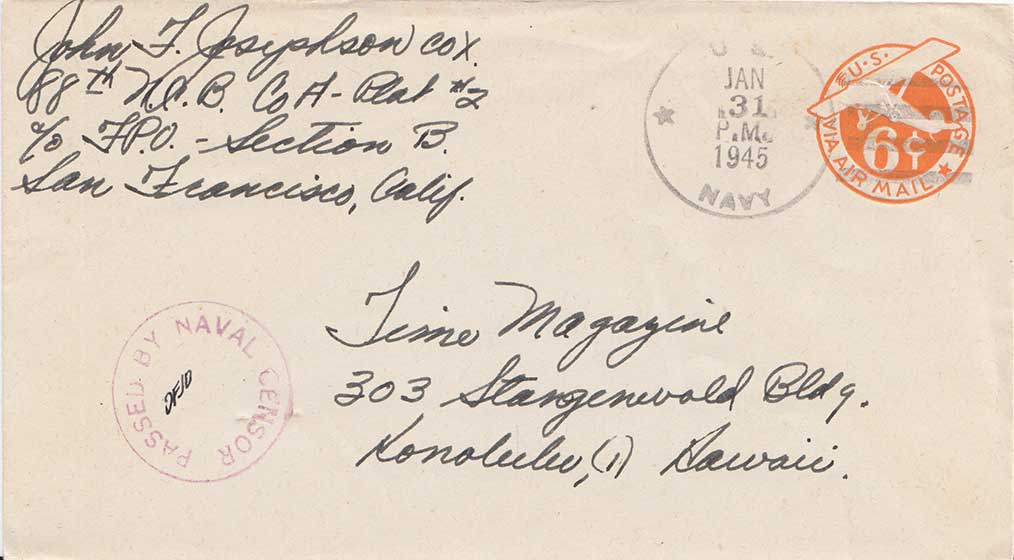 John F. Josephson cox.
88th N.C.B. Co A - Plat #2
c/o F.P.O. - Section B.
San Francisco, Calif.
JAN
31
P.M.
1945
NAVY
U.S. POSTAGE
6¢
VIA AIR MAIL
Time Magazine
303 Stangenwald Bldg.
Honolulu, (1) Hawaii.
PASSED BY NAVAL CENSOR